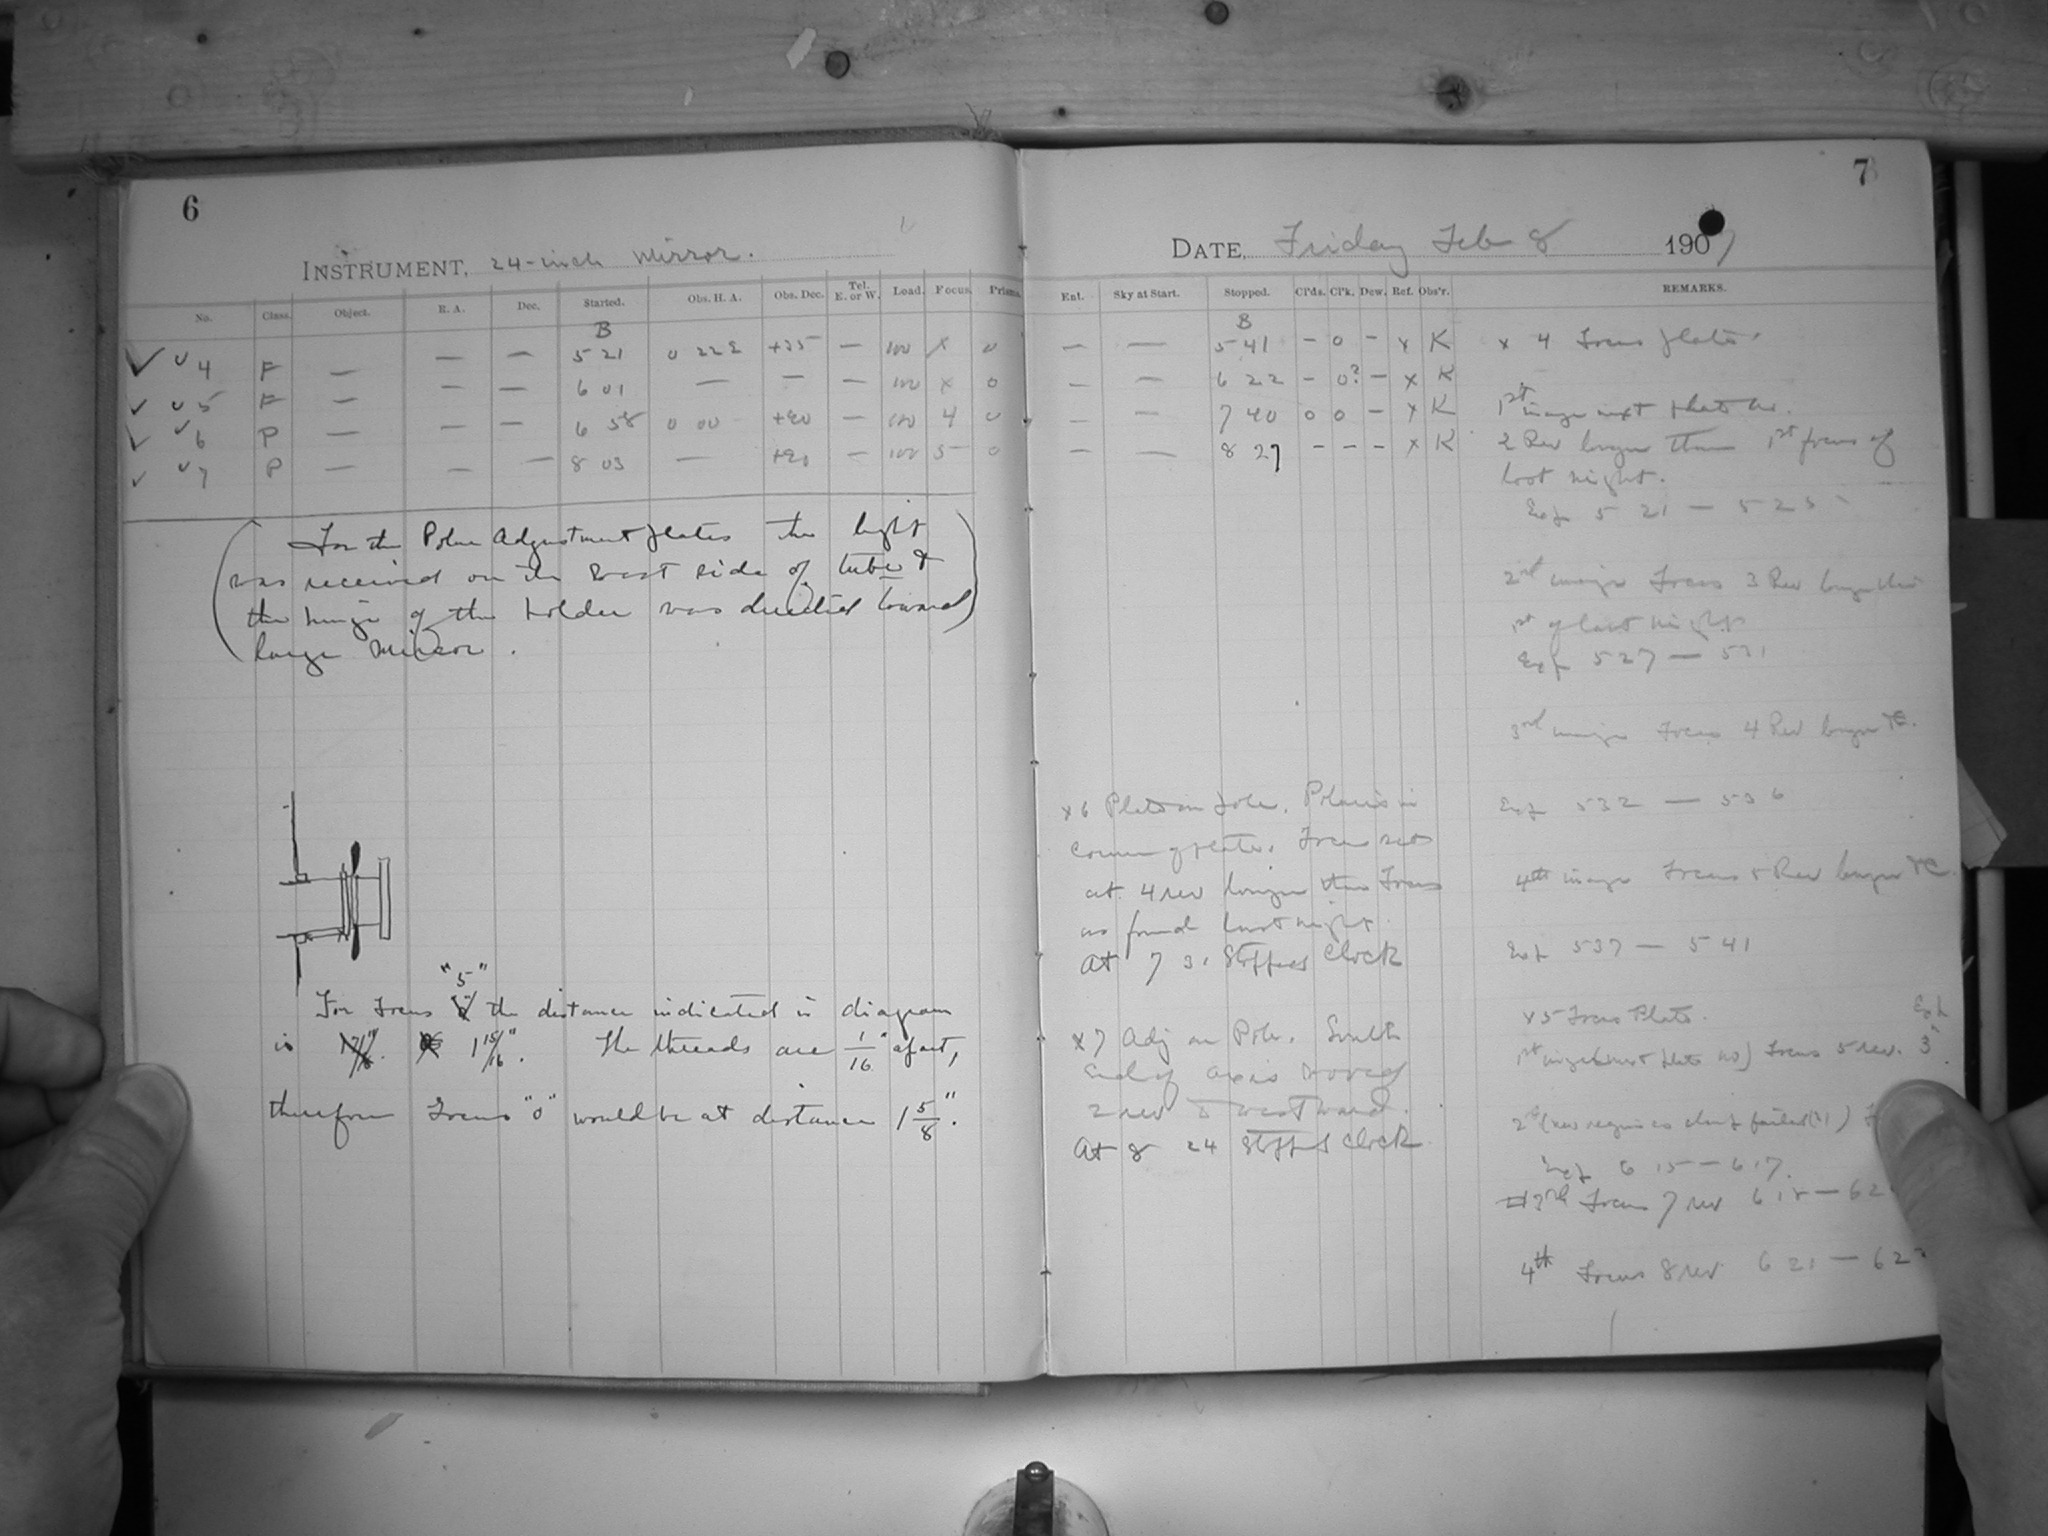 6
INSTRUMENT, 24-inch Mirror.
No. Class. Object. R. A. Dec. Started. Obs. H. A. Obs. Dec. Tel. E. or W. Load. Focus. Prisms.
B
4 F — — — 5 21 0 222 +35 — 100 x 0
5 F — — — 6 01 — — — 100 x 0
6 P — — — 6 58 0 00 +90 — 100 4 0
7 P — — — 8 03 — +90 — 100 5 0
(For the Polar Adjustment plates the light
was received on the west side of tube &
the hinge of the holder was directed toward)
large Mirror.
"5"
For Focus the distance indicated in diagram
is 1 15/16". The threads are 1/16" apart,
therefore Focus "0" would be at distance 1 5/8".
7
DATE, Friday Feb 8 1907
Ent. Sky at Start. Stopped. Cl'ds. Cl'k. Dew. Ref. Obs'r. REMARKS.
B
— — 5 41 — 0 — x K x 4 Focus plate.
— — 6 22 — 0? — x K
— — 7 40 0 0 — x K 1st image next plate no.
— — 8 27 — — — x K 2 Rev longer than 1st focus of
last night.
Exp 5 21 — 5 25
2nd image Focus 3 Rev longer than
1st of last night
Exp 527 — 531
3rd image Focus 4 Rev longer &c.
Exp 532 — 536
4th image Focus 5 Rev longer &c.
Exp 537 — 541
x5 Focus Plate. Exp
1st image (next plate no) Focus 5 rev. 3
2nd failed
Exp 6 15 — 6 17.
3rd Focus 7 rev 6 18 — 62
4th Focus 8 rev 6 21 — 62
x6 Plate on Pole. Polaris in
corner of plate. Focus set
at 4 rev longer than Focus
as found last night.
At 7 3 stopped clock
x7 Adj on Pole. South
end of axis moved
2 rev westward.
At 8 24 stopped clock